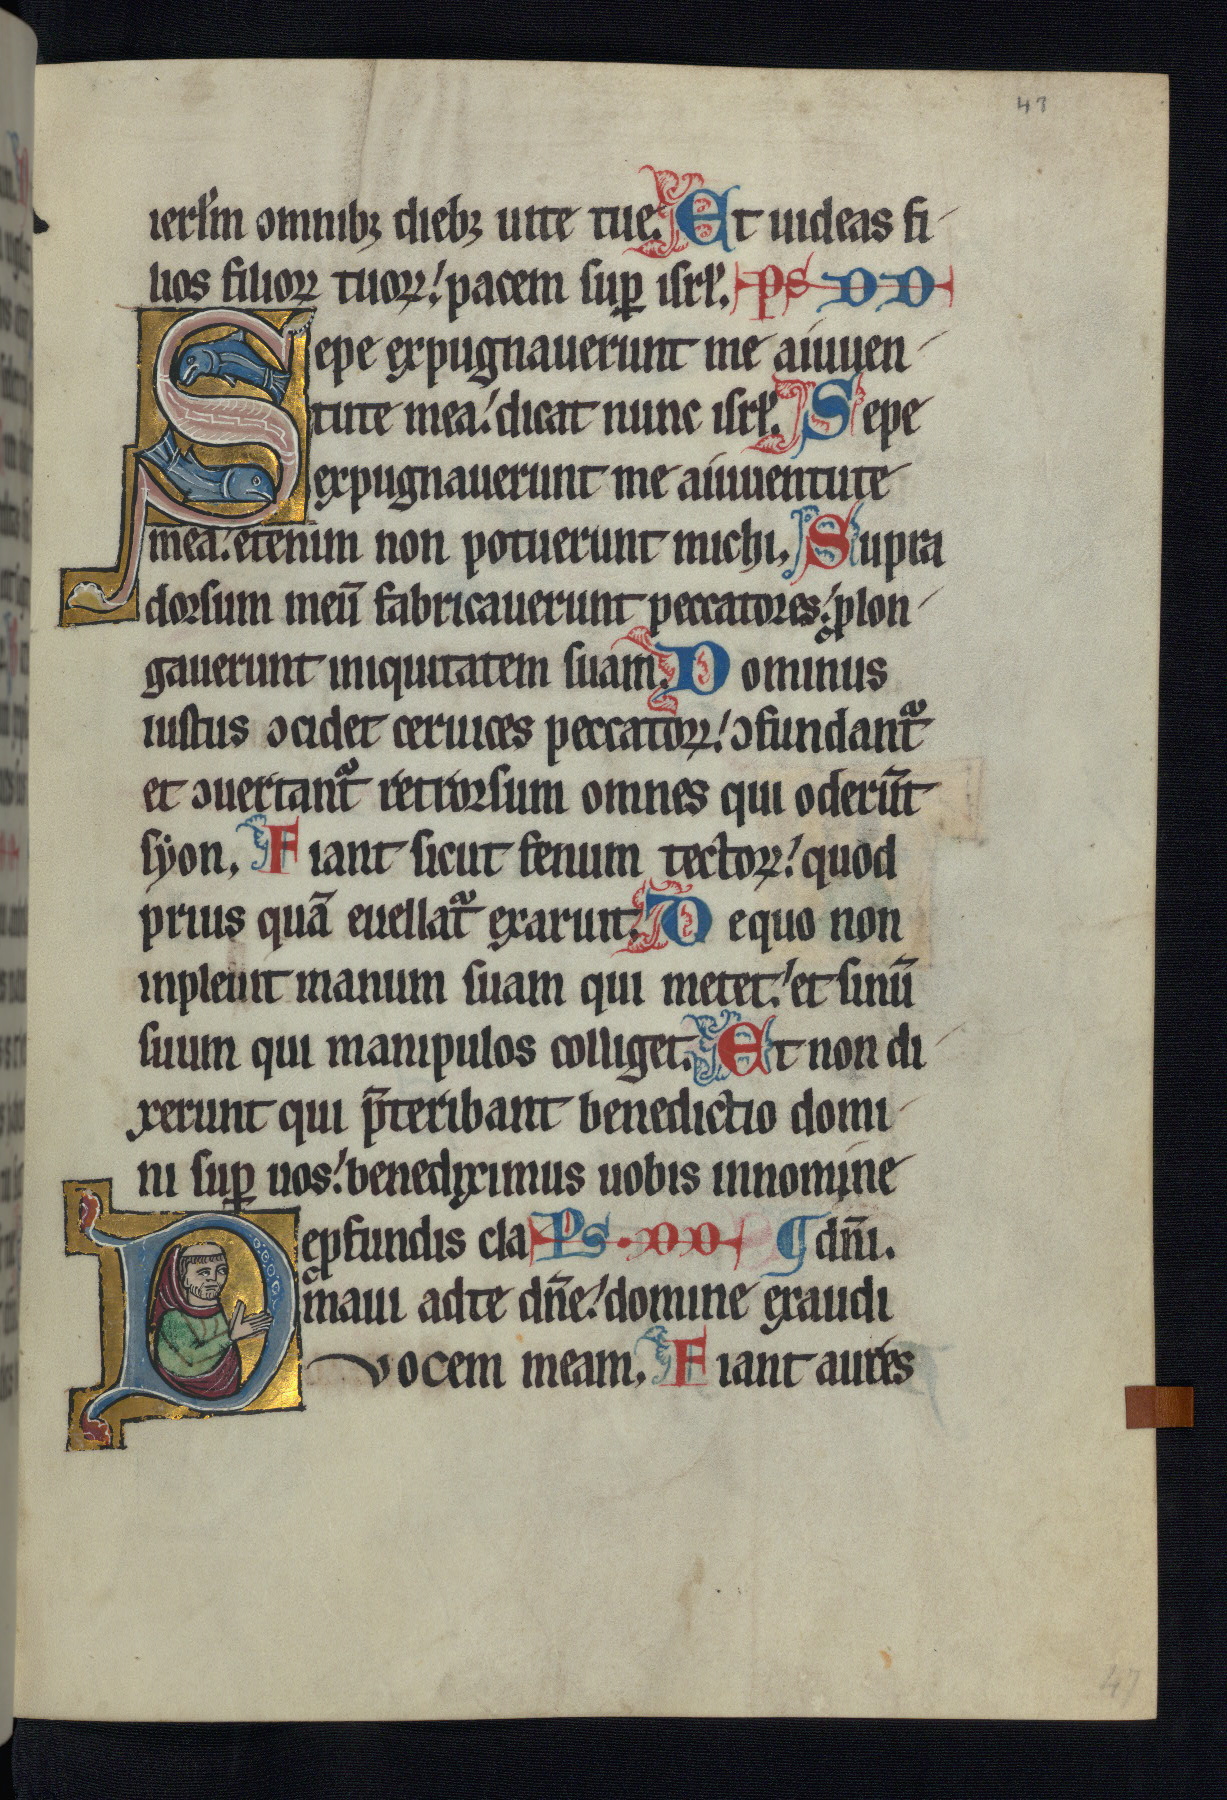 47
ierl̃m omnibꝫ diebꝫ uite tue. Et uideas fi
lios filioꝝ tuoꝝ: pacem suꝑ isrl̃. PS DD
Sepe expugnauerunt me aiuuen
tute mea: dicat nunc isrl̃. Sepe
expugnauerunt me aiuuentute
mea: etenim non potuerunt michi. Supra
dorsum meū fabricauerunt peccatores: plon
gauerunt iniquitatem suam. Dominus
iustus ↄcidet ceruices peccatoꝝ: ↄfundantᷓ
et ↄuertantᷓ retrorsum omnes qui oderūt
syon. Fiant sicut fenum tectoꝝ: quod
prius quā euellatᷓ exaruit. De quo non
inpleuit manum suam qui metet: et sinū
suum qui manipulos colliget. Et non di
xerunt qui p̄teribant benedictio domi
ni suꝑ uos: benediximus uobis innomine
Deꝓfundis cla PS. DD ¶ dn̄i.
maui adte dn̄e: domine exaudi
vocem meam. Fiant aures
47